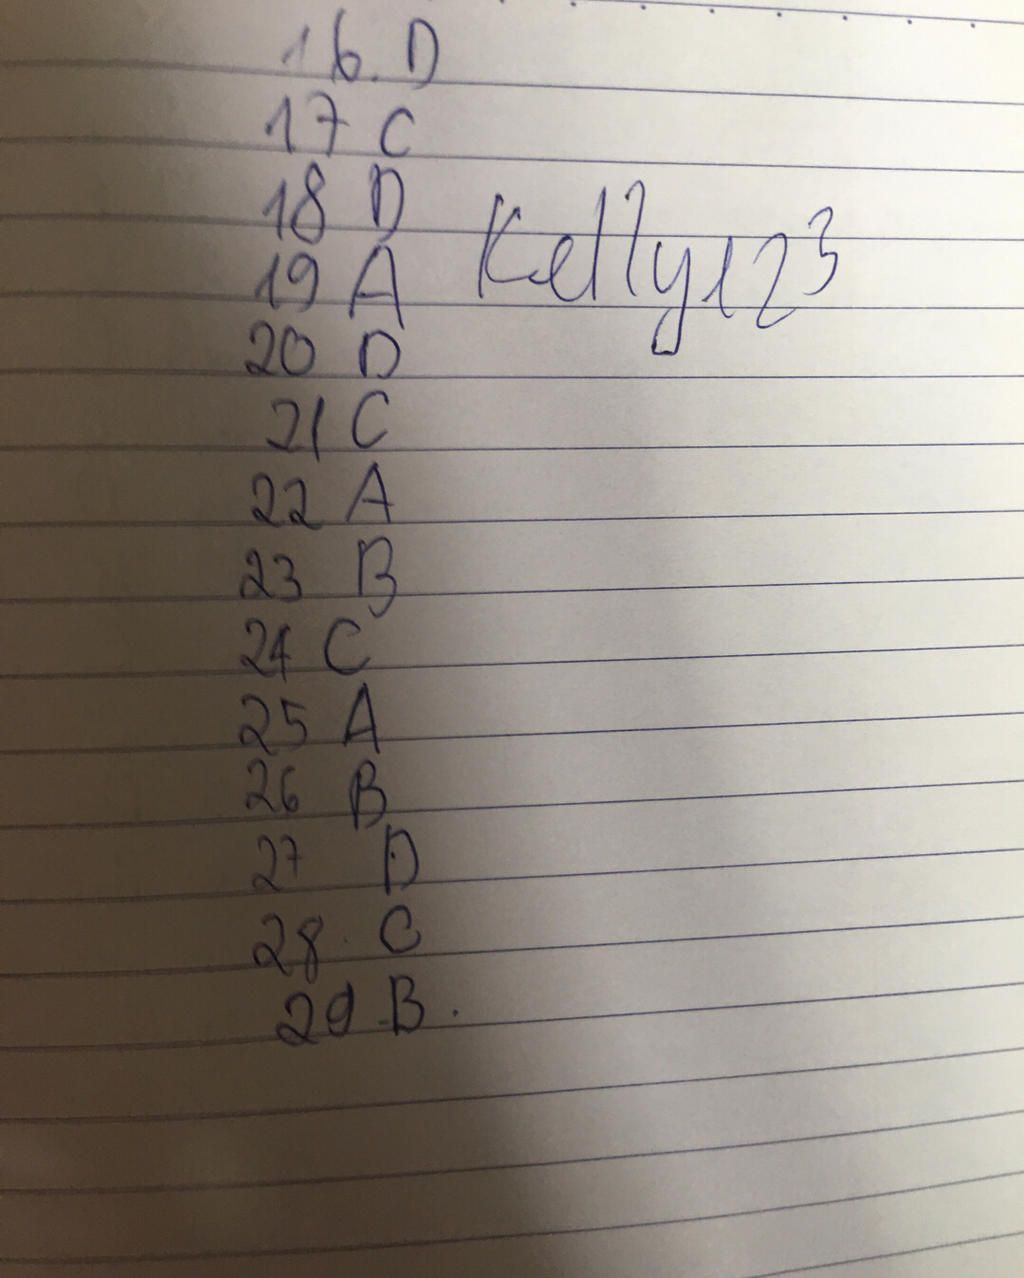 16. D
17 C
18 D
Kelly123
19 A
20 D
21 C
22 A
23 B
24 C
25 A
26 B
27 D
28 C
29 B.